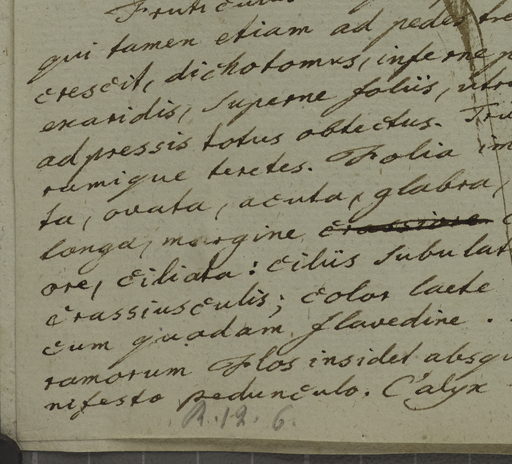 Fruticulus
qui tamen etiam ad pedes tre
crescit, dichotomus, inferne
exaridis, superne foliis, utri
adpressis totus obtectus. Tru
ramique teretes. Folia im
ta, ovata, acuta, glabra,
longa, margine crassiore
ore, ciliata: ciliis subulat
crassiusculis; color laete
cum quadam flavedine.
ramorum Flos insidet absqu
nifesto pedunculo. Calyx
R. 12. 6.